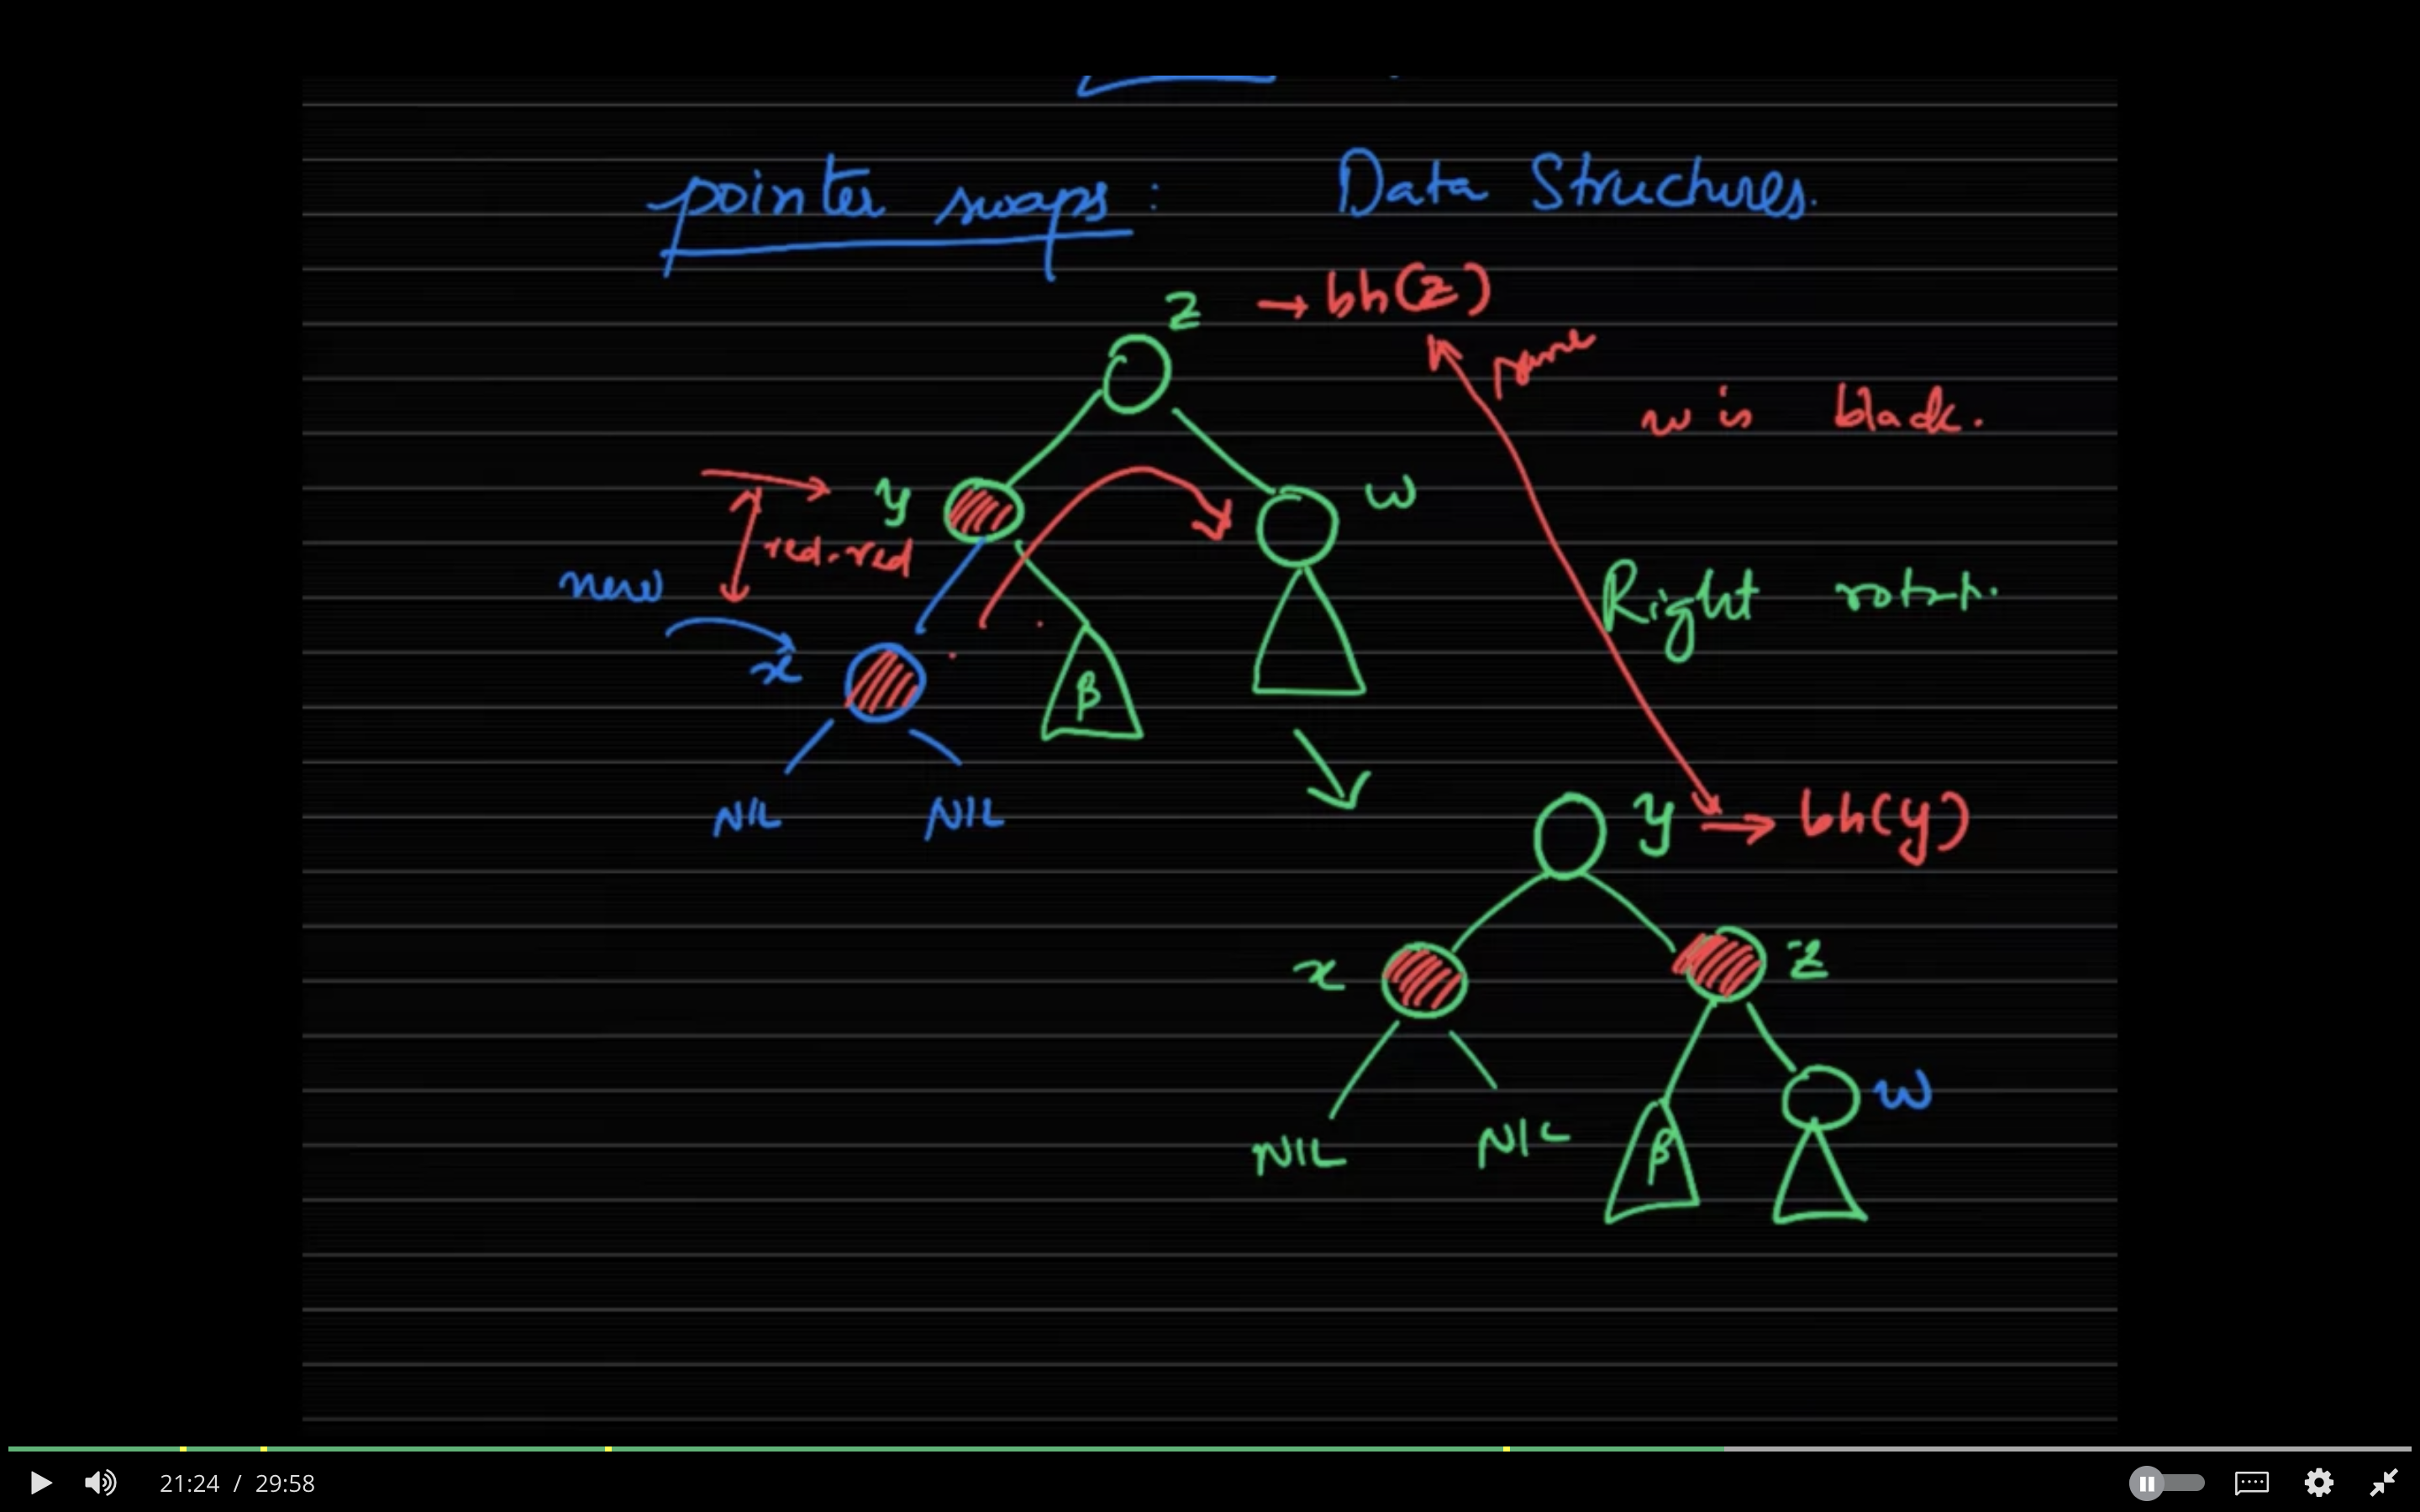 pointer swaps : Data Structures.
z → bh(z)
same
w is black.
y
w
red-red
new
Right rotn.
x
β
NIL NIL
y → bh(y)
x
z
w
NIL
NIL
β
21:24 / 29:58